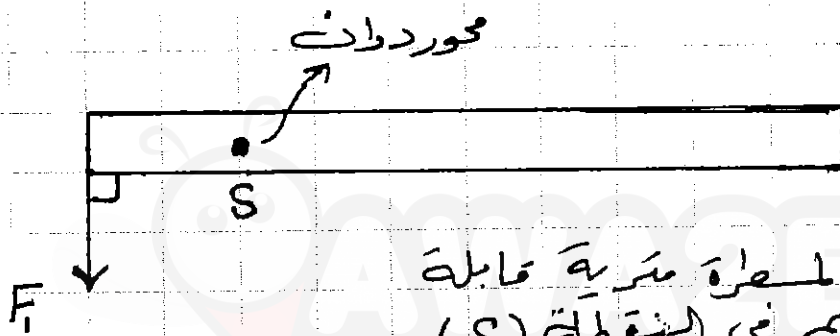 محور دوران
S
F₁
لمسطرة مترية قابلة
في النقطة (S)